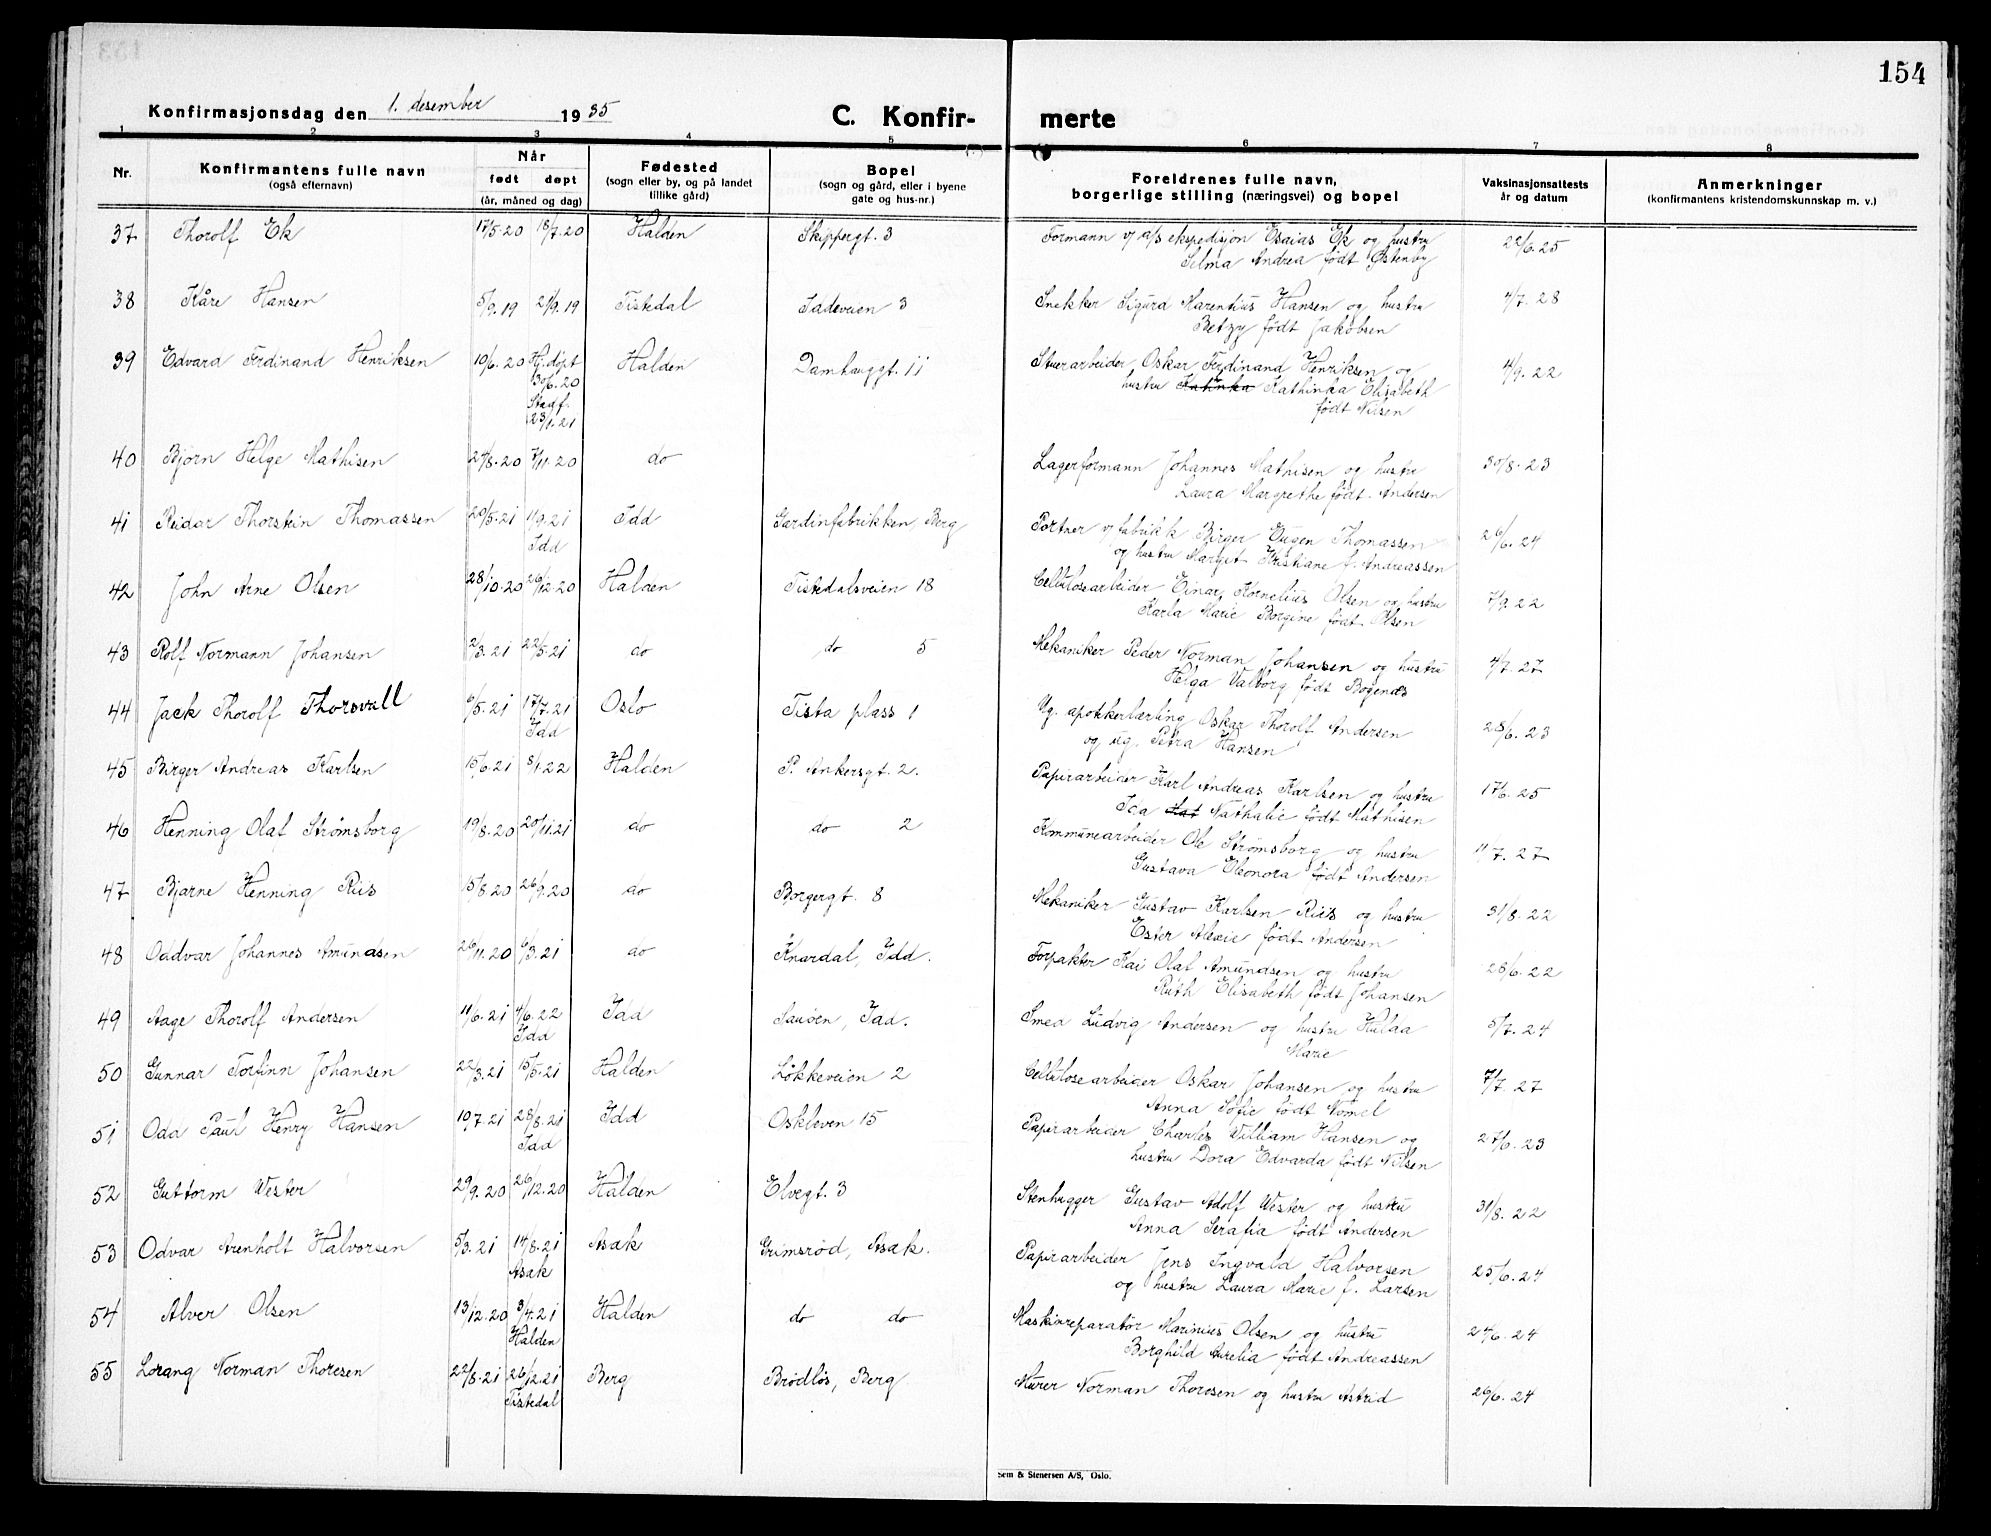 154
Konfirmasjonsdag den 1. desember 1935 C. Konfir- merte
1 2 3 4 5 6 7 8
Nr. Konfirmantens fulle navn (også efternavn) Når født døpt (år, måned og dag) Fødested (sogn eller by, og på landet tillike gård) Bopel (sogn og gård, eller i byene gate og hus-nr.) Foreldrenes fulle navn, borgerlige stilling (næringsvei) og bopel Vaksinasjonsattests år og datum Anmerkninger (konfirmantens kristendomskunnskap m. v.)
37 Thorolf Ek 17/5.20 18/7.20 Halden Skippergt. 3 Formann v/ a/s ekspedisjon Esaias Ek og hustru 22/6.25
Selma Andrea født Østenby
38 Kåre Hansen 5/9.19 21/9.19 Tistedal Iddeveien 3 Snekker Sigurd Marentius Hansen og hustru 4/7.28
Betzy født Jakobsen
39 Edvard Ferdinand Henriksen 10/6.20 Hj.døpt Halden Damhauggt. 11 Stuerarbeider Oskar Ferdinand Henriksen og 4/9.22
30/6.20 hustru Katinka Kathinka Elisabeth
Stadf. født Nilsen
23/1.21
40 Bjørn Helge Mathisen 24/8.20 7/11.20 do Lagerformann Johannes Mathisen og hustru 30/8.23
Laura Margrethe født Andersen
41 Reidar Thorstein Thomassen 20/5.21 11/9.21 Idd Gardinfabrikken, Berg Portner v/ fabrikk Birger Eugen Thomassen 26/6.24
Idd og hustru Margit Kristiane f. Andreassen
42 John Arne Olsen 28/10.20 26/12.20 Halden Tistedalsveien 18 Cellulosearbeider Einar Kornelius Olsen og hustru 7/9.22
Karla Marie Borgine født Olsen
43 Rolf Normann Johansen 2/3.21 22/5.21 do do 5 Mekaniker Peder Norman Johansen og hustru 4/7.27
Helga Valborg født Bogenæs
44 Jack Thorolf Thorsvall 6/5.21 17/7.21 Oslo Tista plass 1 Ug. apotekerlærling Oskar Thorolf Andersen 28/6.23
Idd og ug. Petra Hansen
45 Birger Andreas Karlsen 15/6.21 8/1.22 Halden P. Ankersgt. 2. Papirarbeider Karl Andreas Karlsen og hustru 17/6.25
Ida Mat Nathalie født Mathisen
46 Henning Olaf Strømsborg 19/8.20 20/11.21 do do 2 Kommunearbeider Ole Strømsborg og hustru 11/7.27
Gustava Eleonora født Andersen
47 Bjarne Henning Riis 15/8.20 26/9.20 do Borgergt. 8 Mekaniker Gustav Karlsen Riis og hustru 31/8.22
Ester Alexie født Andersen
48 Oddvar Johannes Amundsen 26/11.20 6/3.21 do Knardal, Idd. Forpakter Kai Olaf Amundsen og hustru 28/6.22
Ruth Elisabeth født Johansen
49 Aage Thorolf Andersen 11/6.21 4/6.22 Idd Sauøen, Idd. Smed Ludvig Andersen og hustru Hulda 5/7.24
Idd Marie
50 Gunnar Torfinn Johansen 22/3.21 15/5.21 Halden Løkkeveien 2 Cellulosearbeider Oskar Johansen og hustru 7/7.27
Anna Sofie født Nomel
51 Odd Paul Henry Hansen 19/7.21 28/8.21 Idd Oskleven 15 Papirarbeider Charles William Hansen og 27/6.23
Idd hustru Dora Edvarda født Nilsen
52 Guttorm Wester 29/9.20 26/12.20 Halden Elvegt. 3 Stenhugger Gustav Adolf Wester og hustru 31/8.22
Anna Serafia født Andersen
53 Odvar Arenholt Halvorsen 5/3.21 14/8.21 Asak Grimsrød, Asak. Papirarbeider Jens Ingvald Halvorsen 25/6.24
Asak og hustru Laura Marie f. Larsen
54 Alver Olsen 13/12.20 3/4.21 Halden do do Maskinreparatør Marinius Olsen og hustru 24/6.24
Halden Borghild Aurelia født Andreassen
55 Lorang Norman Thoresen 22/8.21 26/12.21 Berg Brødløs, Berg Murer Norman Thoresen og hustru Astrid 26/6.24
Tistedal
Sem & Stenersen A/S, Oslo.